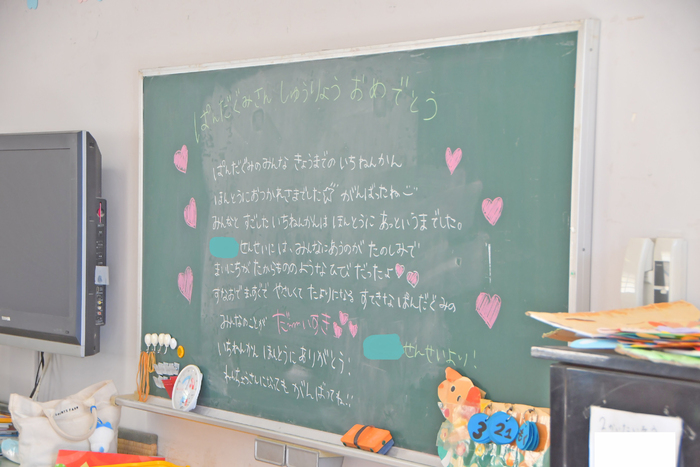 ぱんだぐみさん しゅうりょう おめでとう
ぱんだぐみのみんな きょうまでの いちねんかん
ほんとうにおつかれさまでした☆ がんばったね
みんなと すごした いちねんかんは ほんとうに あっというまでした。
せんせいには、みんなにあうのが たのしみで
まいにちが たからもののような ひび だったよ♡♡
すなおで まっすぐで やさしくて たよりになる すてきな ぱんだぐみの
みんなのことが だーいすき♡♡♡
いちねんかん ほんとうに ありがとう!
ねんちょうさいになっても がんばってね!!
せんせいより!
3 21